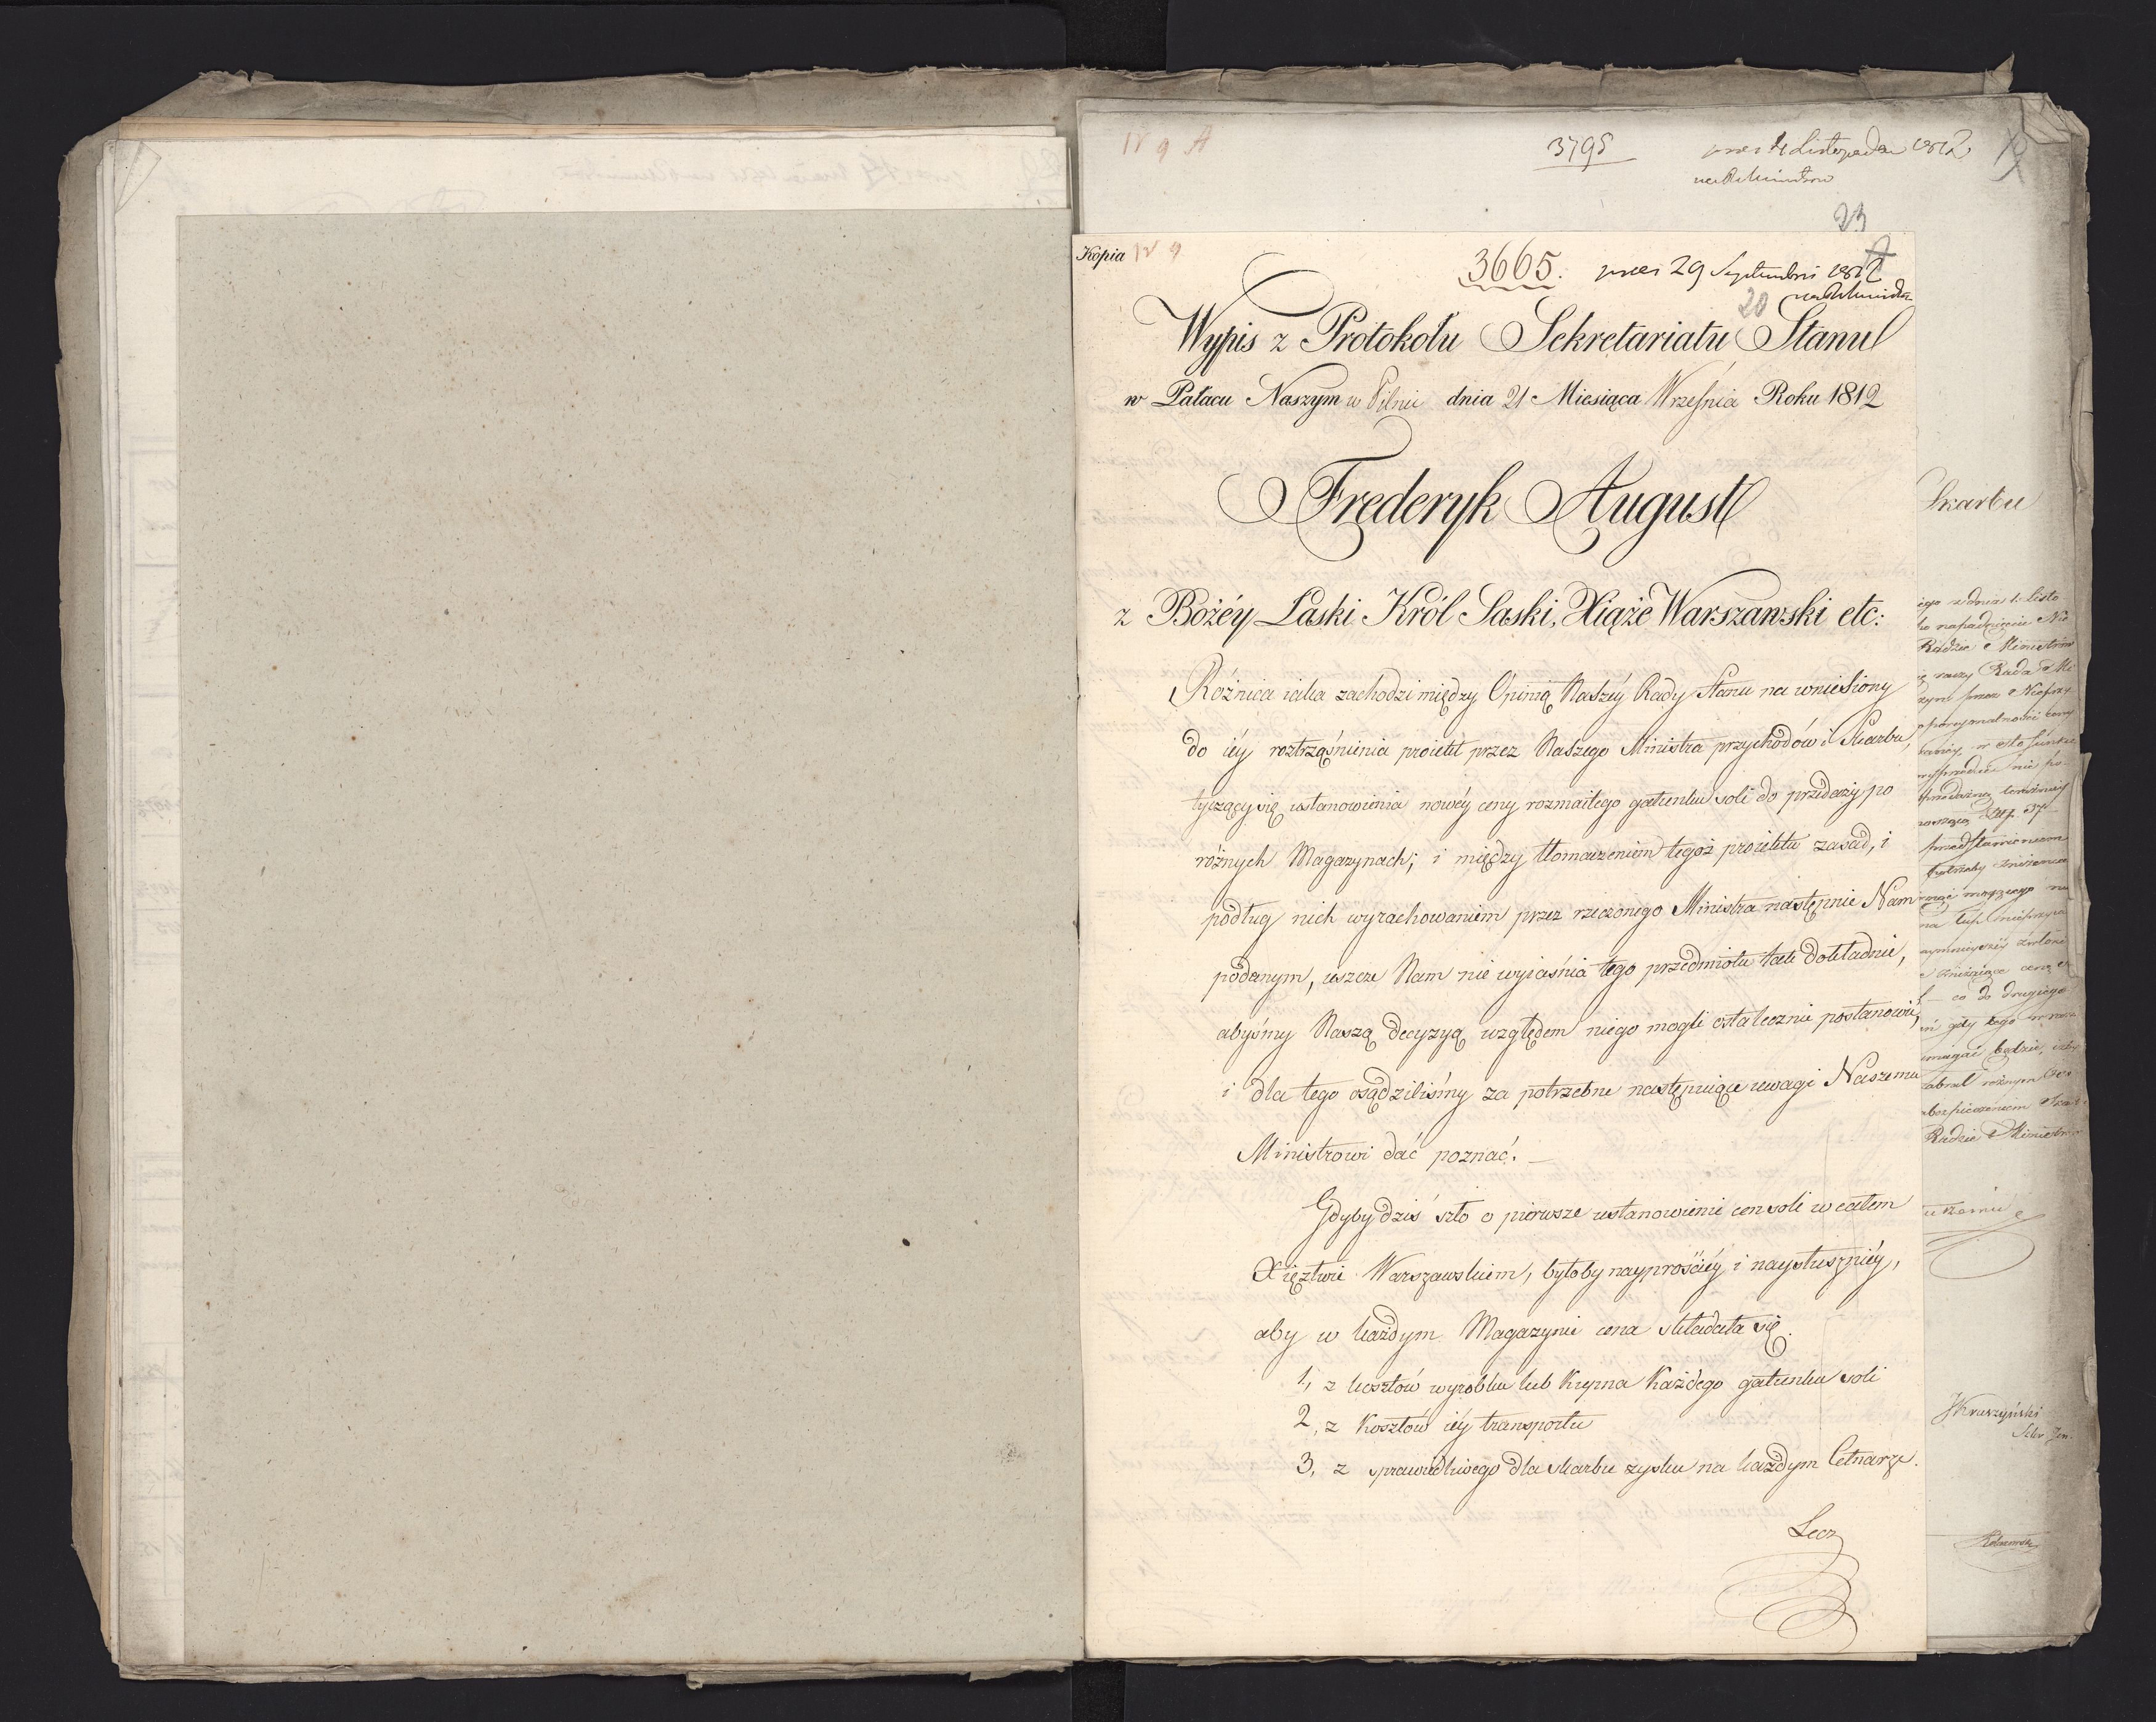 N 9 A
3795
pres 4 Listopada 1812
23
Kopia N 9
3665. pres 29 Septembris 1812
20
Wypis z Protokołu Sekretariatu Stanu
w Pałacu Naszym w Pilnic dnia 21 Miesiąca Wrzesnia Roku 1812
Frederyk August
z Bożéy Łaski Król Saski, Xiąże Warszawski etc:
Rożnica iaka zachodzi między Opinią Naszéy Rady Stanu na wniesiony
do iéy roztrząśnienia proiekt przez Naszego Ministra przychodów i Skarbu,
tyczący się ustanowienia nowéy ceny rozmaitego gatunku soli do przedaży po
różnych Magazynach; i między tłomaczeniem tegoż proiektu zasad, i
podług nich wyrachowaniem przez rzeczonego Ministra następnie Nam
podanym, ieszcze Nam nie wyiaśnia tego przedmiotu tak dokładnie,
abyśmy Naszą decyzyą względem niego mogli ostatecznie postanowić,
i dla tego osądziliśmy za potrzebne następuiące uwagi Naszemu
Ministrowi dać poznać. —
Gdyby dziś szło o pierwsze ustanowienie cen soli w całem
Xięztwie Warszawskiem, byłoby nayprościéy i naysłuszniéy,
aby w każdym Magazynie cena składała się.
1, z kosztów wyrobku lub Kupna Każdego gatunku soli
2, z Kosztów iéy transportu
3, z sprawiedliwego dla skarbu zysku na każdym Cetnarze.
Lecz
Skarbu
iego z dnia 1. listo
Radzie Ministrów
raczy Rada Mi
co do drugiego
gdy tego
magać będzie,
Radzie Ministrów
JKruszyński
Sekr Jen.